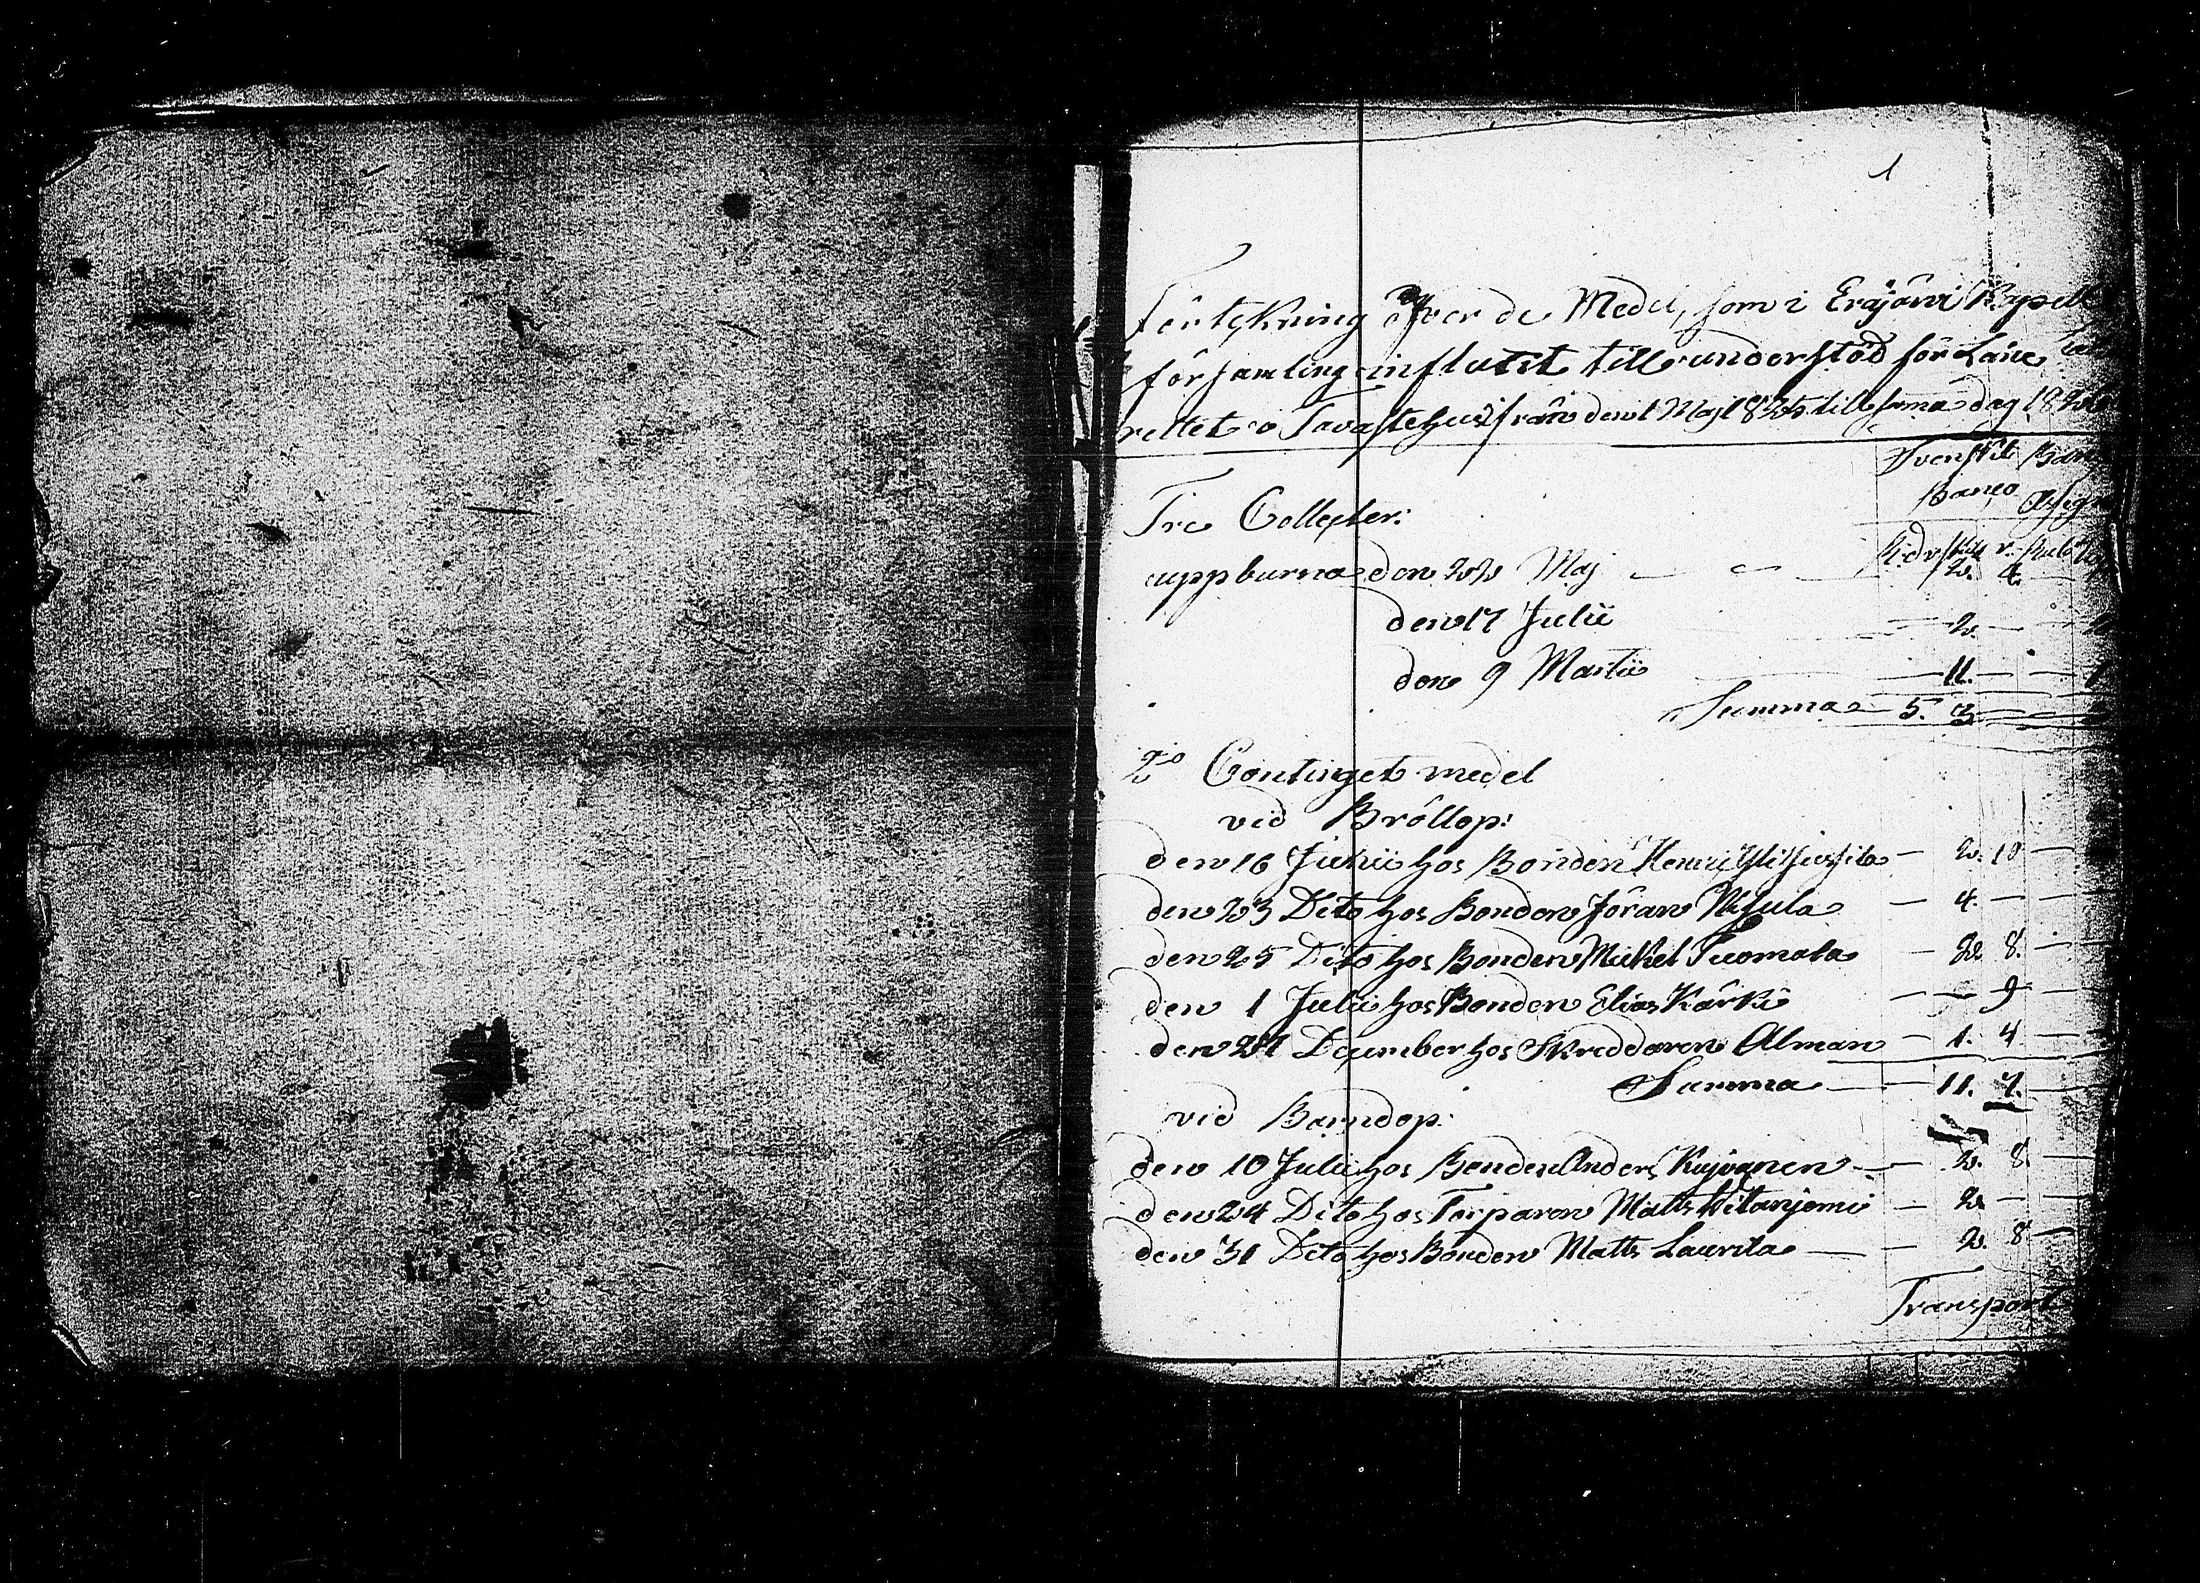 1
Förtekning öfver de Medel, som i Eräjärvi Kapell
församling influtit till understöd för Läne
rettet i Tavastehus från den 1 Maj 1825 till sama dag 1826
Svenskt
Banco
Tre Collecter:
uppburna den 22 Maj — — 2. 4.
den 17 Julii — 2. —
den 9 Martii — 11. —
Summa — 5. 3.
2o Continget medel
vid Bröllop:
den 16 Junii hos Bonden Henric — 2. 10 —
den 23 Dito hos Bonden Jöran — 4. — —
den 25 Dito hos Bonden Mickel Tuomala — 2. 8. —
den 1 Julii hos Bonden Elias Kärki — — 9 —
den 27 December hos Skreddaren Alman — 1. 4 —
Summa — 11. 7. —
vid Barndop:
den 10 Julii hos Bonden Anders — 2. 8
den 24 Dito hos Torparen Matts — 2. —
den 31 Dito hos Bonden Matts Laurila — — 2. 8 —
Transport